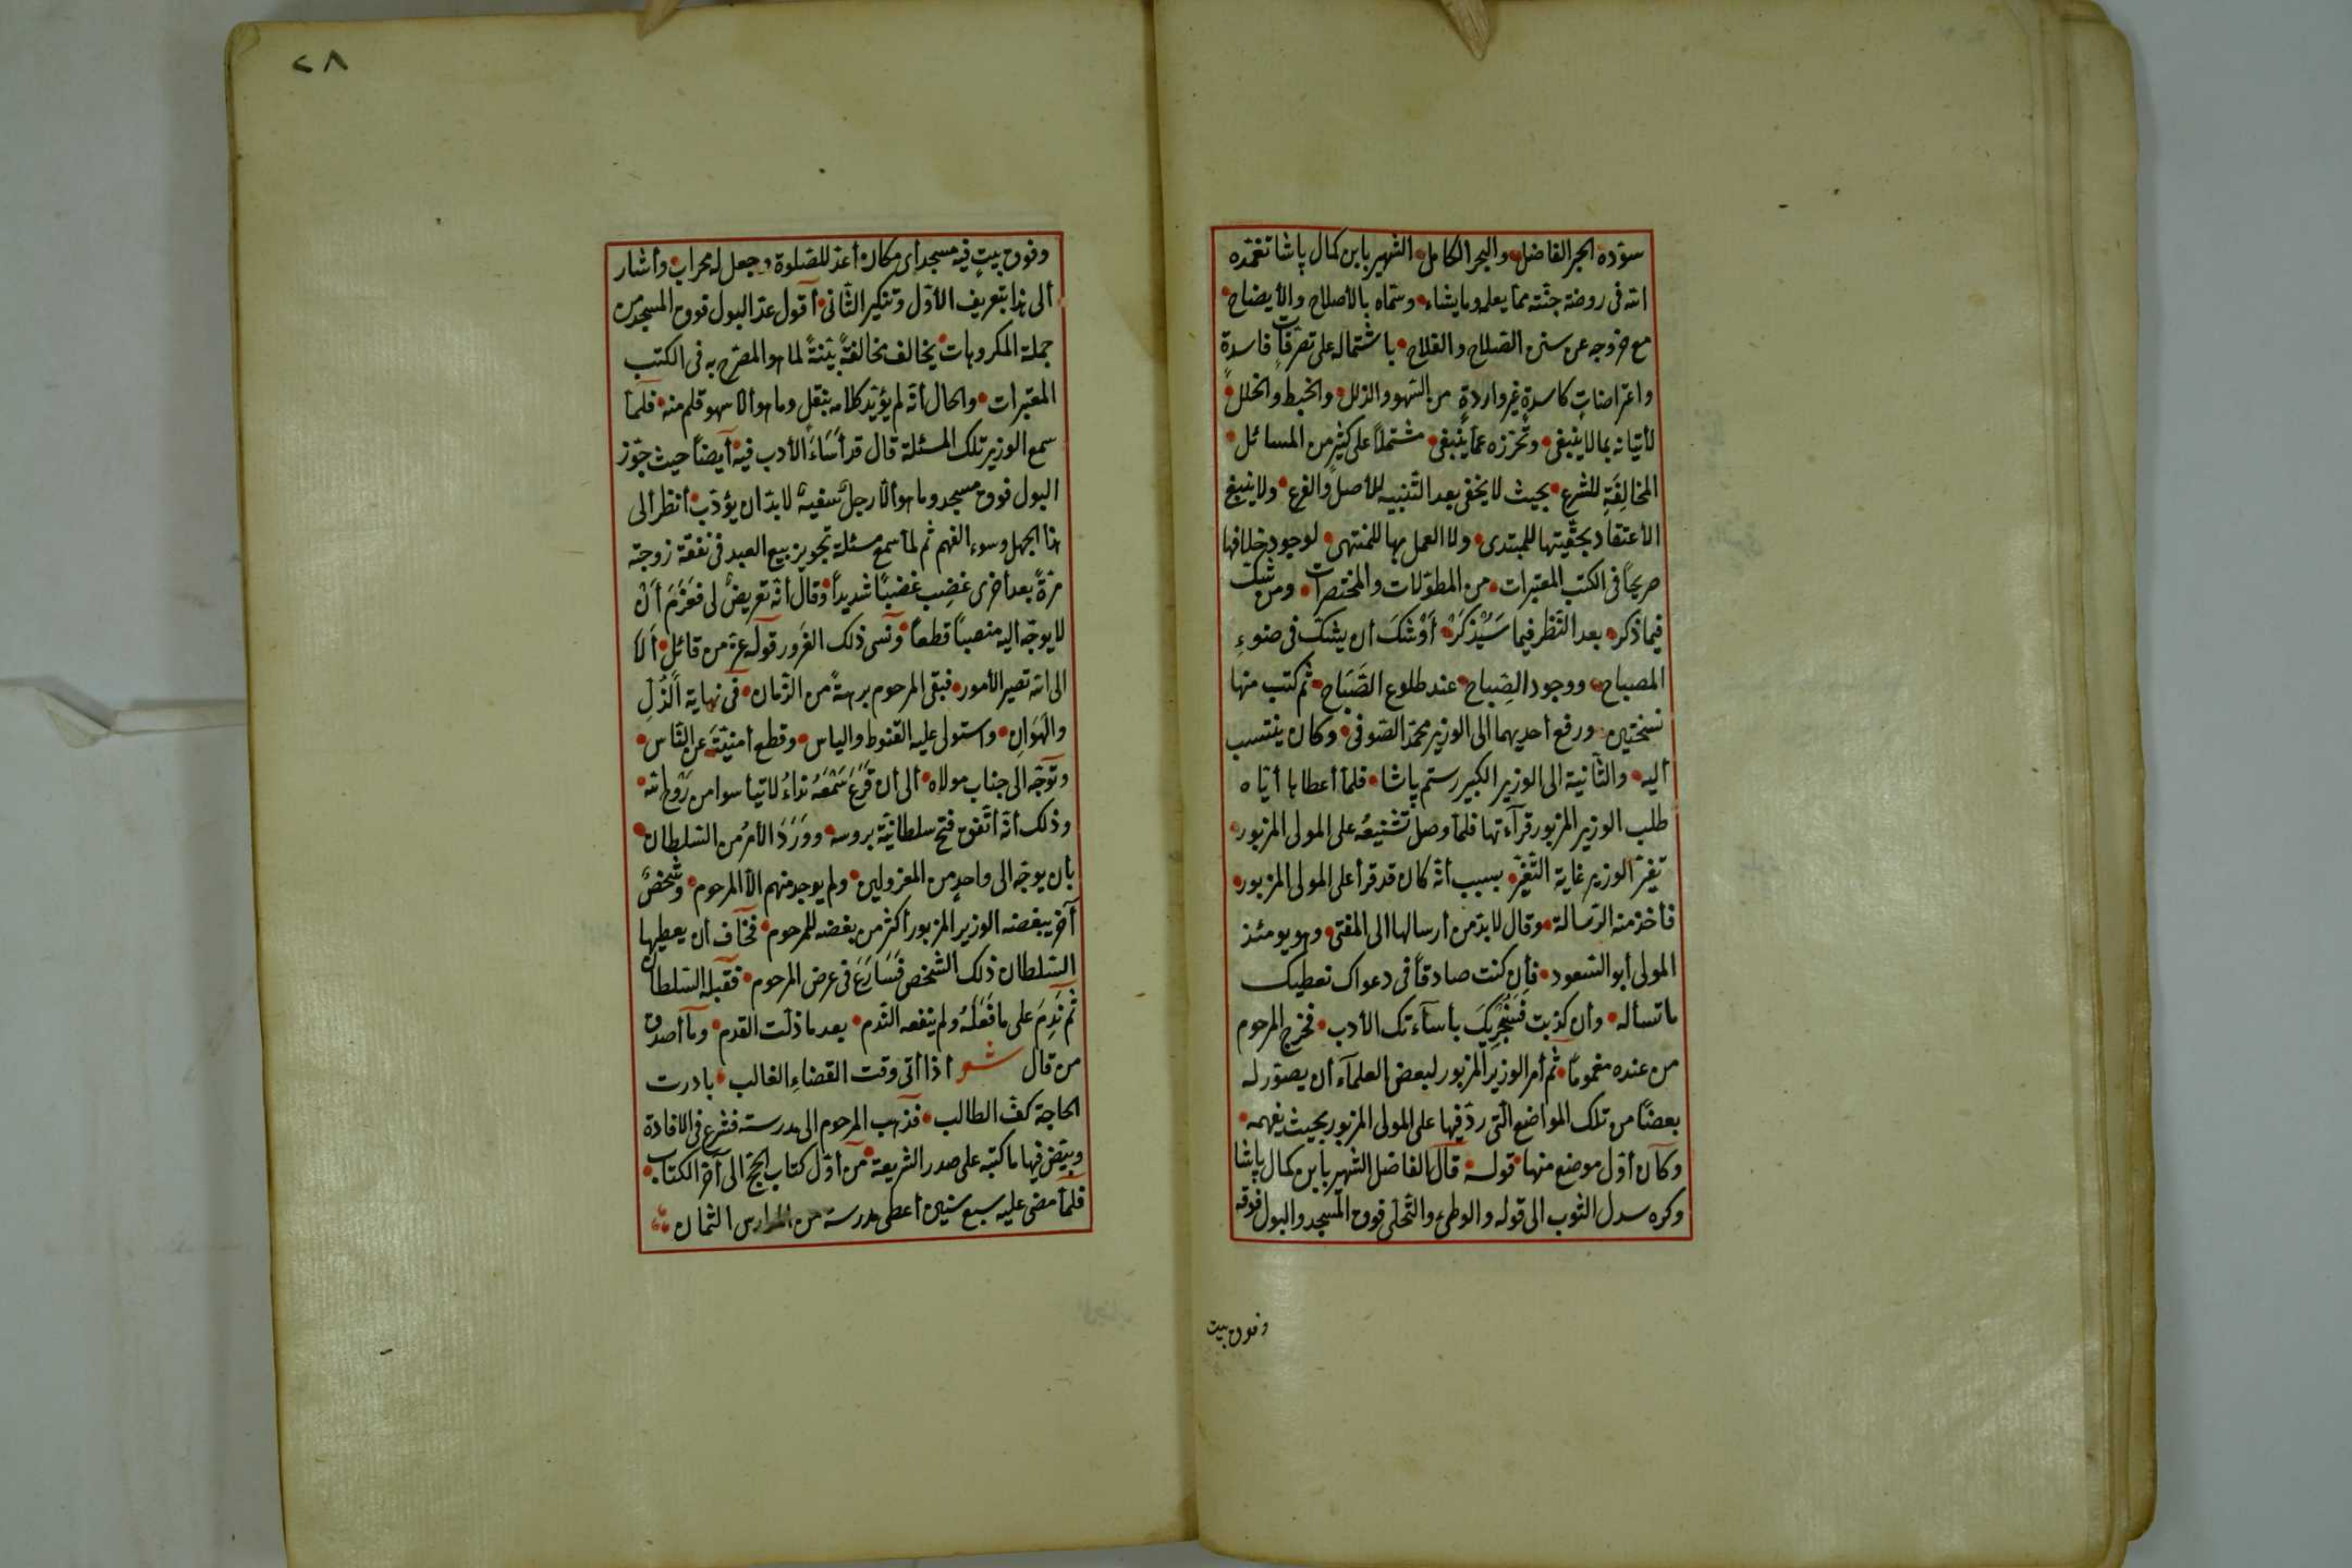 سوّده الحبر الفاضل والبحر الكامل الشهير بابن كمال پاشا تغمّده
الله فى روضة جنّته ممّا يعلم وما يشاء وسمّاه بالأصلاح والأيضاح
مع خروجه عن سنن الصّلاح والفلاح باشتماله على تصرّفات فاسدة
واعتراضات كاسدة غير واردة من السّهو والزلل والخبط والخلل
لأتيانه بما لا ينبغى وتحرّزه عمّا ينبغى مشتملاً على كثير من المسائل
المخالِفَةِ للشرع بحيث لا يخفى بعد التّنبيه للأصل والفرع ولا ينبغى
الأعتقاد بحقّيتها للمبتدى ولا العمل بها للمنتهى لوجود خلافها
صريحاً فى الكتب المعتبرات من المطوّلات والمختصرات ومن شكّ
فيما ذكره بعد النّظر فيما سَيُذكَرُ أوْشَكَ أن يشكّ فى ضوءِ
المصباح ووجود الصِباح عند طلوع الصَّبَاح ثم كتب منها
نسختين ورفع أحديهما الى الوزير محمّد الصّوفى وكان ينتسب
أليه والثّانية الى الوزير الكبير رستم پاشا فلمّا أعطاها أيّاه
طلب الوزير المزبور قرآءتها فلمّا وصل تشنيعُه على المولى المزبور
تغيّر الوزير غاية التّغيّر بسبب أنّه كان قد قرأ على المولى المزبور
فأخذ منه الرّسالة وقال لا بدّ من أرسالها الى المفتى وهو يومئذ
المولى أبو السّعود فأِن كنت صادقاً فى دعواك نعطيك
ما تسأله وأن كذبت فَنُجْزِيكَ بأسآءتك الأدب فخرج المرحوم
من عنده مغموماً ثم أمر الوزير المزبور لبعض العلمآء أن يصوّر له
بعضاً من تلك المواضع الّتى ردّ فيها على المولى المزبور بحيث يفهمه
وكان أوّل موضع منها قوله قال الفاضل الشهير بأبن كمال پاشا
وكره سدل الثوب الى قوله والوطىء والتّخلّى فوق المسجد والبول فوقه
وفوق بيت
٢٨
وفوق بيتٍ فيه مسجد أى مكان أعدّ للصّلوة وجعل له محراب وأشار
ألى هذا بتعريف الأوّل وتنكير الثّانى أقول عدّ البول فوق المسجد من
جملة المكروهات يخالف مخالفةً بيّنةً لما هو المصّرح به فى الكتب
المعتبرات والحال أنّه لم يؤيّد كلامه بنقلٍ وما هو ألّا سهو قلم منه فلمّا
سمع الوزير تلك المسئلة قال قد أسَاءَ الأدب فيه أيضاً حيث جوّز
البول فوق مسجد وما هو ألّا رجلٌ سفيهٌ لا بدّ ان يؤدّب أنظر ألى
هذا الجهل وسوء الفهم ثم لمّا سمع مسئلة تجويز بيع العبد فى نفقة زوجته
مرّةً بعد أخرى غضِب غضبًا شديداً وقال أنّه تعريضٌ لى فعَزَمَ أنْ
لا يوجّه اليه منصباً قطعاً ونسى ذلك الغَرور قوله عزّ من قائل ألا
الى الله تصير الأمور فبقى المرحوم برهةً من الزّمان فى نهاية الذُّلِ
والهَوَانِ واستولى عليه القنوط والياس وقطع أمنيّتَه عن النّاس
وتوجّه الى جناب مولاه ألى أن قَرَعَ سَمْعَهُ نداءُ لا تيأسوا من رَوْحِ الله
وذلك أنّه أتّفق فتح سلطانيّة بروسه ووَرَدَ الأمرُ من السّلطان
بأن يوجّه الى واحدٍ من المعزولين ولم يوجد منهم الأ المرحوم وشخصٌ
آخر يبغضه الوزير المزبور أكثر من بغضه للمرحوم فخاف أن يعطيها
السّلطان ذلك الشخص فَسَارَعَ فى عرض المرحوم فقبله السّلطان
ثم نَدِمَ على ما فَعَلَهُ ولم ينفعه النّدم بعد ما ذلّت القدم وما أصدق
من قال شعر أذا أتى وقت القضاءِ الغالب بادرت
الحاجة كفّ الطالب فذهب المرحوم الى مدرسته فشرع فى الافادة
وبيّض فيها ما كتبه على صدر الشريعة من أوّل كتاب الحجّ الى آخر الكتاب
فلمّا مضى عليه سبع سنين أعطى مدرسة من المدارس الثمان